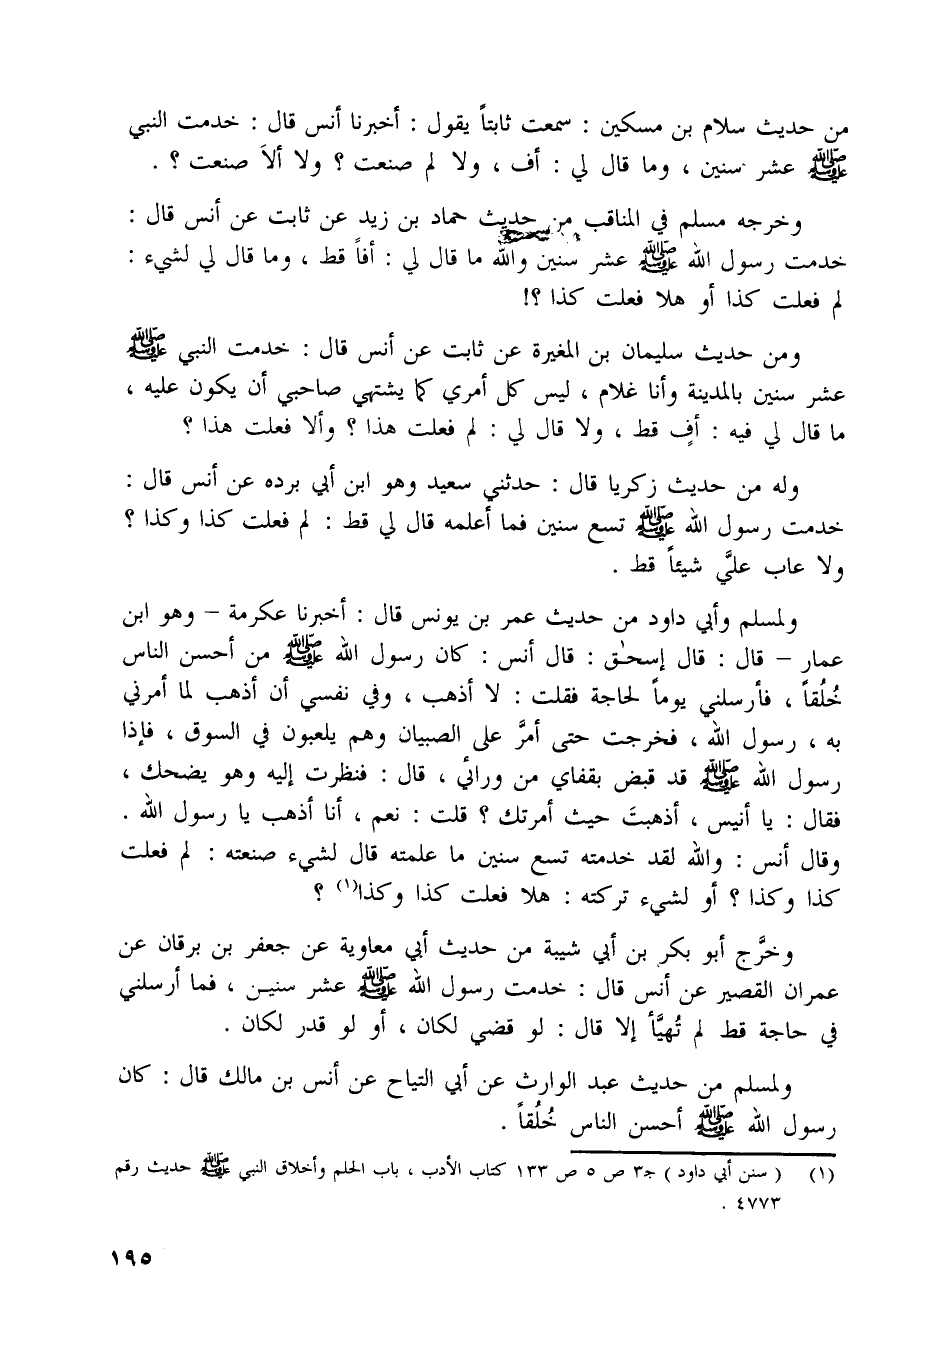 من حديث سلام بن مسكين : سمعت ثابتاً يقول : أخبرنا أنس قال : خدمت النبي
ﷺ عشر سنين ، وما قال لي : أف ، ولا لم صنعت ؟ ولا ألاَ صنعت ؟ .
وخرجه مسلم في المناقب من حديث حماد بن زيد عن ثابت عن أنس قال :
خدمت رسول الله ﷺ عشر سنين والله ما قال لي : أفاً قط ، وما قال لي لشيء :
لم فعلت كذا أو هلا فعلت كذا ؟!
ومن حديث سليمان بن المغيرة عن ثابت عن أنس قال : خدمت النبي ﷺ
عشر سنين بالمدينة وأنا غلام ، ليس كل أمري كما يشتهي صاحبي أن يكون عليه ،
ما قال لي فيه : أفٍ قط ، ولا قال لي : لم فعلت هذا ؟ وألا فعلت هذا ؟
وله من حديث زكريا قال : حدثني سعيد وهو ابن أبي برده عن أنس قال :
خدمت رسول الله ﷺ تسع سنين فما أعلمه قال لي قط : لم فعلت كذا وكذا ؟
ولا عاب عليَّ شيئاً قط .
ولمسلم وأبي داود من حديث عمر بن يونس قال : أخبرنا عكرمة – وهو ابن
عمار – قال : قال إسحٰق : قال أنس : كان رسول الله ﷺ من أحسن الناس
خُلُقاً ، فأرسلني يوماً لحاجة فقلت : لا أذهب ، وفي نفسي أن أذهب لما أمرني
به ، رسول الله ، فخرجت حتى أمرَّ على الصبيان وهم يلعبون في السوق ، فإذا
رسول الله ﷺ قد قبض بقفاي من ورائي ، قال : فنظرت إليه وهو يضحك ،
فقال : يا أنيس ، أذهبتَ حيث أمرتك ؟ قلت : نعم ، أنا أذهب يا رسول الله .
وقال أنس : والله لقد خدمته تسع سنين ما علمته قال لشيء صنعته : لم فعلت
كذا وكذا ؟ أو لشيء تركته : هلا فعلت كذا وكذا(١) ؟
وخرَّج أبو بكر بن أبي شيبة من حديث أبي معاوية عن جعفر بن برقان عن
عمران القصير عن أنس قال : خدمت رسول الله ﷺ عشر سنين ، فما أرسلني
في حاجة قط لم تُهيَّأ إلا قال : لو قضي لكان ، أو لو قدر لكان .
ولمسلم من حديث عبد الوارث عن أبي التياح عن أنس بن مالك قال : كان
رسول الله ﷺ أحسن الناس خُلُقاً .
(١) ( سنن أبي داود ) جـ٣ ص ٥ ص ١٣٣ كتاب الأدب ، باب الحلم وأخلاق النبي ﷺ حديث رقم
٤٧٧٣ .
١٩٥